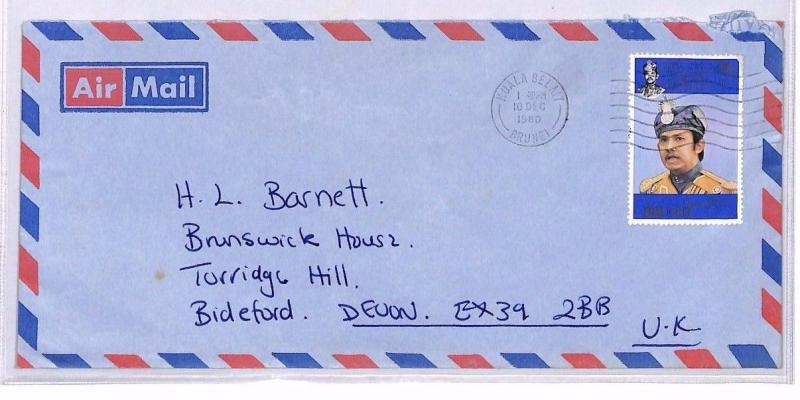 Air Mail
KUALA BELAIT
10 DEC
1980
BRUNEI
H. L. Barnett.
Brunswick House.
Torridge Hill.
Bideford. DEVON. EX39 2BB
U.K